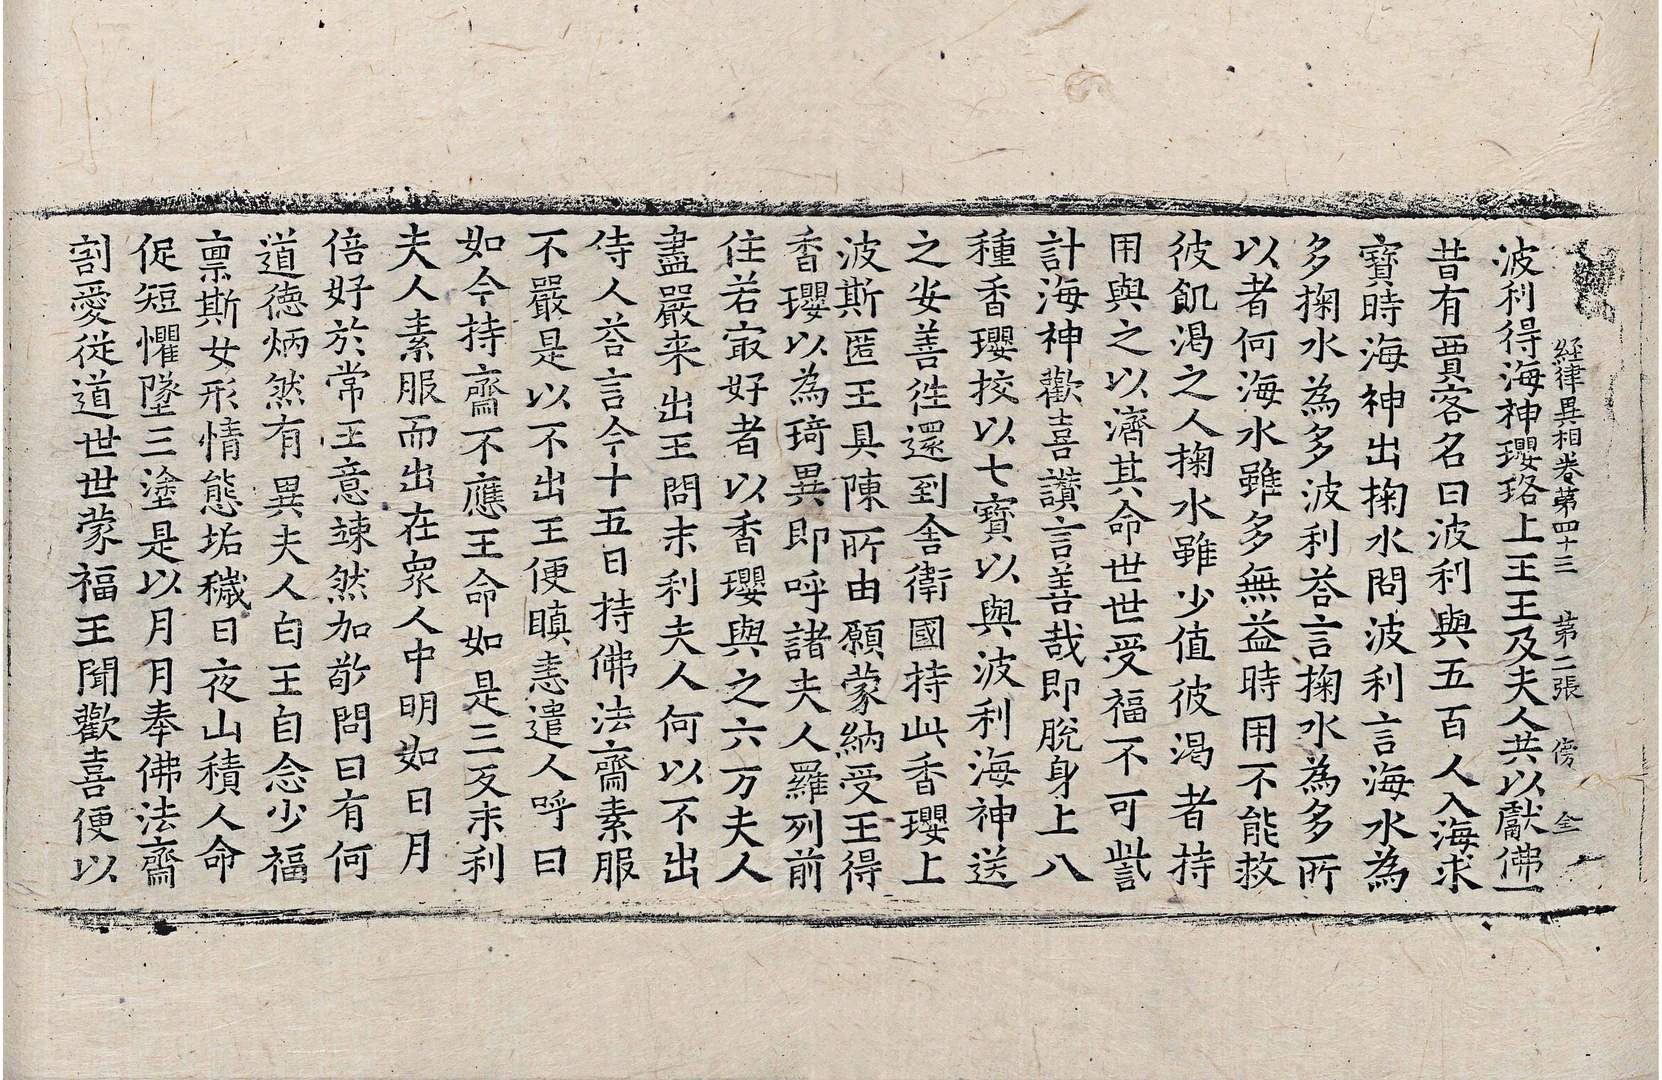 経律異相卷第四十三 第二張 傍 全
波利得海神瓔珞上王王及夫人共以獻佛一
昔有賈客名曰波利與五百人入海求
寶時海神出掬水問波利言海水為
多掬水為多波利荅言掬水為多所
以者何海水雖多無益時用不能救
彼飢渴之人掬水雖少值彼渴者持
用與之以濟其命世世受福不可訾
計海神歡喜讚言善哉即脫身上八
種香瓔挍以七寶以與波利海神送
之安善徃還到舍衛國持此香瓔上
波斯匿王具陳所由願蒙納受王得
香瓔以為琦異即呼諸夫人羅列前
住若㝡好者以香瓔與之六万夫人
盡嚴来出王問末利夫人何以不出
侍人荅言今十五日持佛法齋素服
不嚴是以不出王便瞋恚遣人呼曰
如今持齋不應王命如是三反末利
夫人素服而出在衆人中明如日月
倍好於常王意竦然加敬問曰有何
道德炳然有異夫人白王自念少福
禀斯女形情態垢穢日夜山積人命
促短懼墜三塗是以月月奉佛法齋
割愛從道世世蒙福王聞歡喜便以